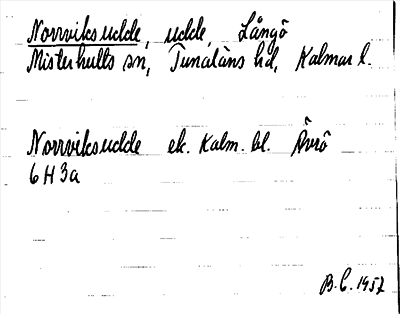 Norrviksudde, udde, Långö
Misterhults sn, Tunaläns hd, Kalmar l.
Norrviksudde ek. Kalm. bl. Ävrö
6H3a
B.C. 1957